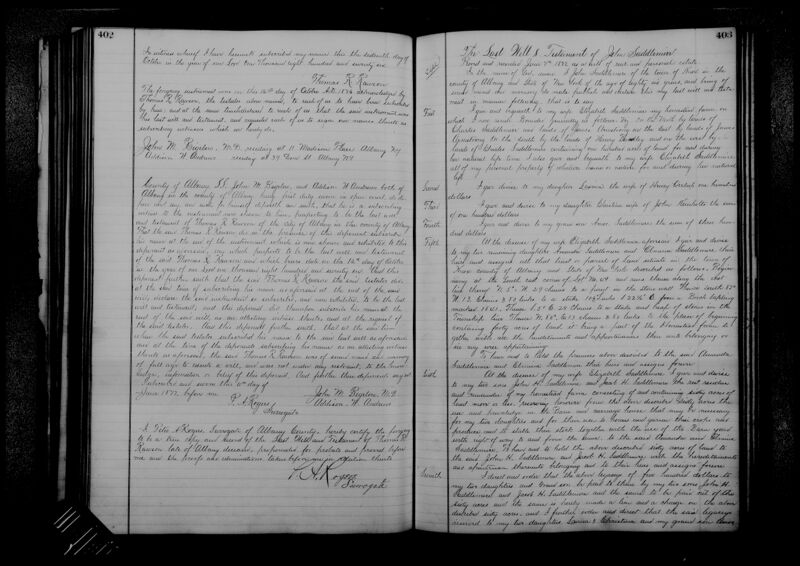 402
In witness whereof I have hereunto subscribed my name this the sixteenth day of
October in the year of our Lord One Thousand eight hundred and seventy six
Thomas R Rawson
The foregoing instrument was on this 16th day of October A.D. 1876 acknowledged by
Thomas R. Rawson, the testator above named, to each of us to have been subscribed
by him and at the same time declared to each of us that the said instrument was
his last will and testament, and requested each of us to sign our names thereto as
subscribing witnesses which we hereby do.
John M. Bigelow, M.D. residing at 11 Madison Place Albany NY
Addison W Andrews residing at 39 Dove St Albany NY
County of Albany SS. John M. Bigelow, and Addison W Andrews both of
Albany in the county of Albany being first duly sworn in open court do de-
pose and say each for himself deposeth and saith, that he is a subscribing
witness to the instrument now shown to him, purporting to be the last will
and testament of Thomas R Rawson of the City of Albany in the county of Albany
That the said Thomas R Rawson did in the presence of this deponent subscribe
his name at the end of the instrument which is now shown and exhibited to this
deponent as aforesaid, and which purports to be the last will and testament
of the said Thomas R Rawson and which bears date on the 16th day of October
in the year of our Lord one thousand eight hundred and seventy six. And this
deponent further saith that the said Thomas R Rawson the said testator did
at the said time of subscribing his name as aforesaid at the end of the said
will, declare the said instrument so subscribed, and now exhibited, to be the last
will and testament, and this deponent did thereupon subscribe his name at the
end of the said will, as an attesting witness thereto, and at the request of
the said testator. And this deponent further saith, that at the said time
when the said testator subscribed his name to the said last will as aforesaid
and at the time of the deponent subscribing his name as an attesting witness
thereto as aforesaid, the said Thomas R. Rawson was of sound mind and memory
of full age to execute a will, and was not under any restraint, to the know-
ledge, information or belief of this deponent. And further these deponents say not
Subscribed and sworn this day of
June 1877, before me John M. Bigelow, M.D.
P. A Rogers Addison W. Andrews
Surrogate
I, Peter A Rogers, Surrogate of Albany County, hereby certify the foregoing
to be a true copy and record of the Last Will and Testament of Thomas R.
Rawson late of Albany deceased, propounded for probate and proved before
me and the proofs and examinations taken before me in relation thereto
P. A. Rogers
Surrogate
403
The Last Will & Testament of John Saddlemire
Proved and recorded June 7th 1877 as a will of real and personal estate.
In the name of God, amen. I John Saddlemire of the town of Knox in the
county of Albany and State of New York of the age of eighty six years, and being of
sound mind and memory do make publish and declare this my last will and testa-
ment in manner following, that is to say
First I give and bequeath to my wife Elizabeth Saddlemire my homestead farm on
which I now reside Bounded generally as follows Viz. On the North by lands of
Charles Saddlemire and lands of James Armstrong on the East by lands of James
Armstrong to the South by the lands of Henry and on the west by
lands of Charles Saddlemire containing one hundred acres of land for and during
her natural life time I also give and bequeath to my wife Elizabeth Saddlemire
all of my personal property of whatever name or nature for and during her natural
life
Second I give devise to my daughter Lavinia the wife of Harvey one hundred
dollars
Third I give and devise to my daughter Christina wife of John the sum
of one hundred dollars
Fourth I give and devise to my grand son Amos Saddlemire the sum of three hun-
dred dollars
Fifth At the decease of my wife Elizabeth Saddlemire aforesaid I give and devise
to my two surviving daughters Amanda Saddlemire and Elmina Saddlemire their
heirs and assigns all that tract or parcel of Land situate in the town of
Knox county of Albany and State of New York described as follows. Begin-
ning at the South east corner of Lot No and runs thence along the
line thereof N 5° W 29 chains to a jump in the stone wall Thence South 85°
W 13 Chains & 80 links to a stake
marked 1861. Thence S 5° E 29 Chains to a stake and heap of stones in the
Township line Thence N 85° E 13 chains & 80 links to the place of beginning
containing forty acres of land it being a part of the Homestead farm to-
gether with all the tenements and appurtenances there unto belonging or
in any wise appertaining
To have and to Hold the premises above devised to the said Amanda
Saddlemire and Elmina Saddlemire their heirs and assigns forever
Sixth At the decease of my wife Elizabeth Saddlemire I give and devise
to my two sons John H. Saddlemire and Jacob H. Saddlemire the rest residue
and remainder of my homestead farm consisting of and containing sixty acres of
land more or less reserving however from the above described Sixty acres the
use and knowledge in the Barn and carriage house that may be necessary
for my two daughters and for their use to House and garner their crops and
produce and to stable their stock together with the use of the Barn yard
with right of way to and from the same. To the said Amanda and Elmina
Saddlemire. To have and to hold the above described sixty acres of land to
the said John H. Saddlemire and Jacob H. Saddlemire with the hereditaments
and appurtenances thereunto belonging and to their heirs and assigns forever
Seventh I direct and order that the above legacy of five hundred dollars to
my two daughters and Grand son be paid to them by my two sons John H.
Saddlemire and Jacob H. Saddlemire and the same to be paid out of this
sixty acres and the same is hereby made a lien and a charge on the above
described sixty acres, and I further order and direct that the said legacies
devised to my two daughters, Lavinia & Christina and my grand son Amos